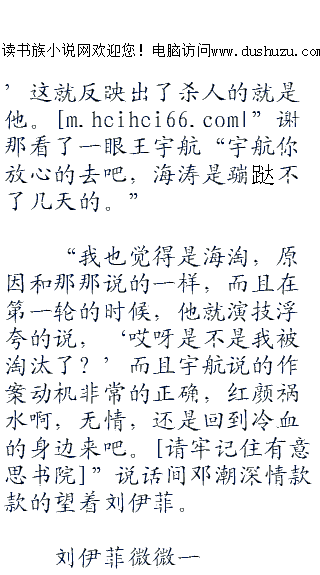 读书族小说网欢迎您！电脑访问www.dushuzu.com
’这就反映出了杀人的就是
他。[m.hcihci66.com|”谢
那看了一眼王宇航“宇航你
放心的去吧，海涛是蹦跶不
了几天的。”
“我也觉得是海淘，原
因和那那说的一样，而且在
第一轮的时候，他就演技浮
夸的说，‘哎呀是不是我被
淘汰了？’而且宇航说的作
案动机非常的正确，红颜祸
水啊，无情，还是回到冷血
的身边来吧。[请牢记住有意
思书院]”说话间邓潮深情款
款的望着刘伊菲。
刘伊菲微微一